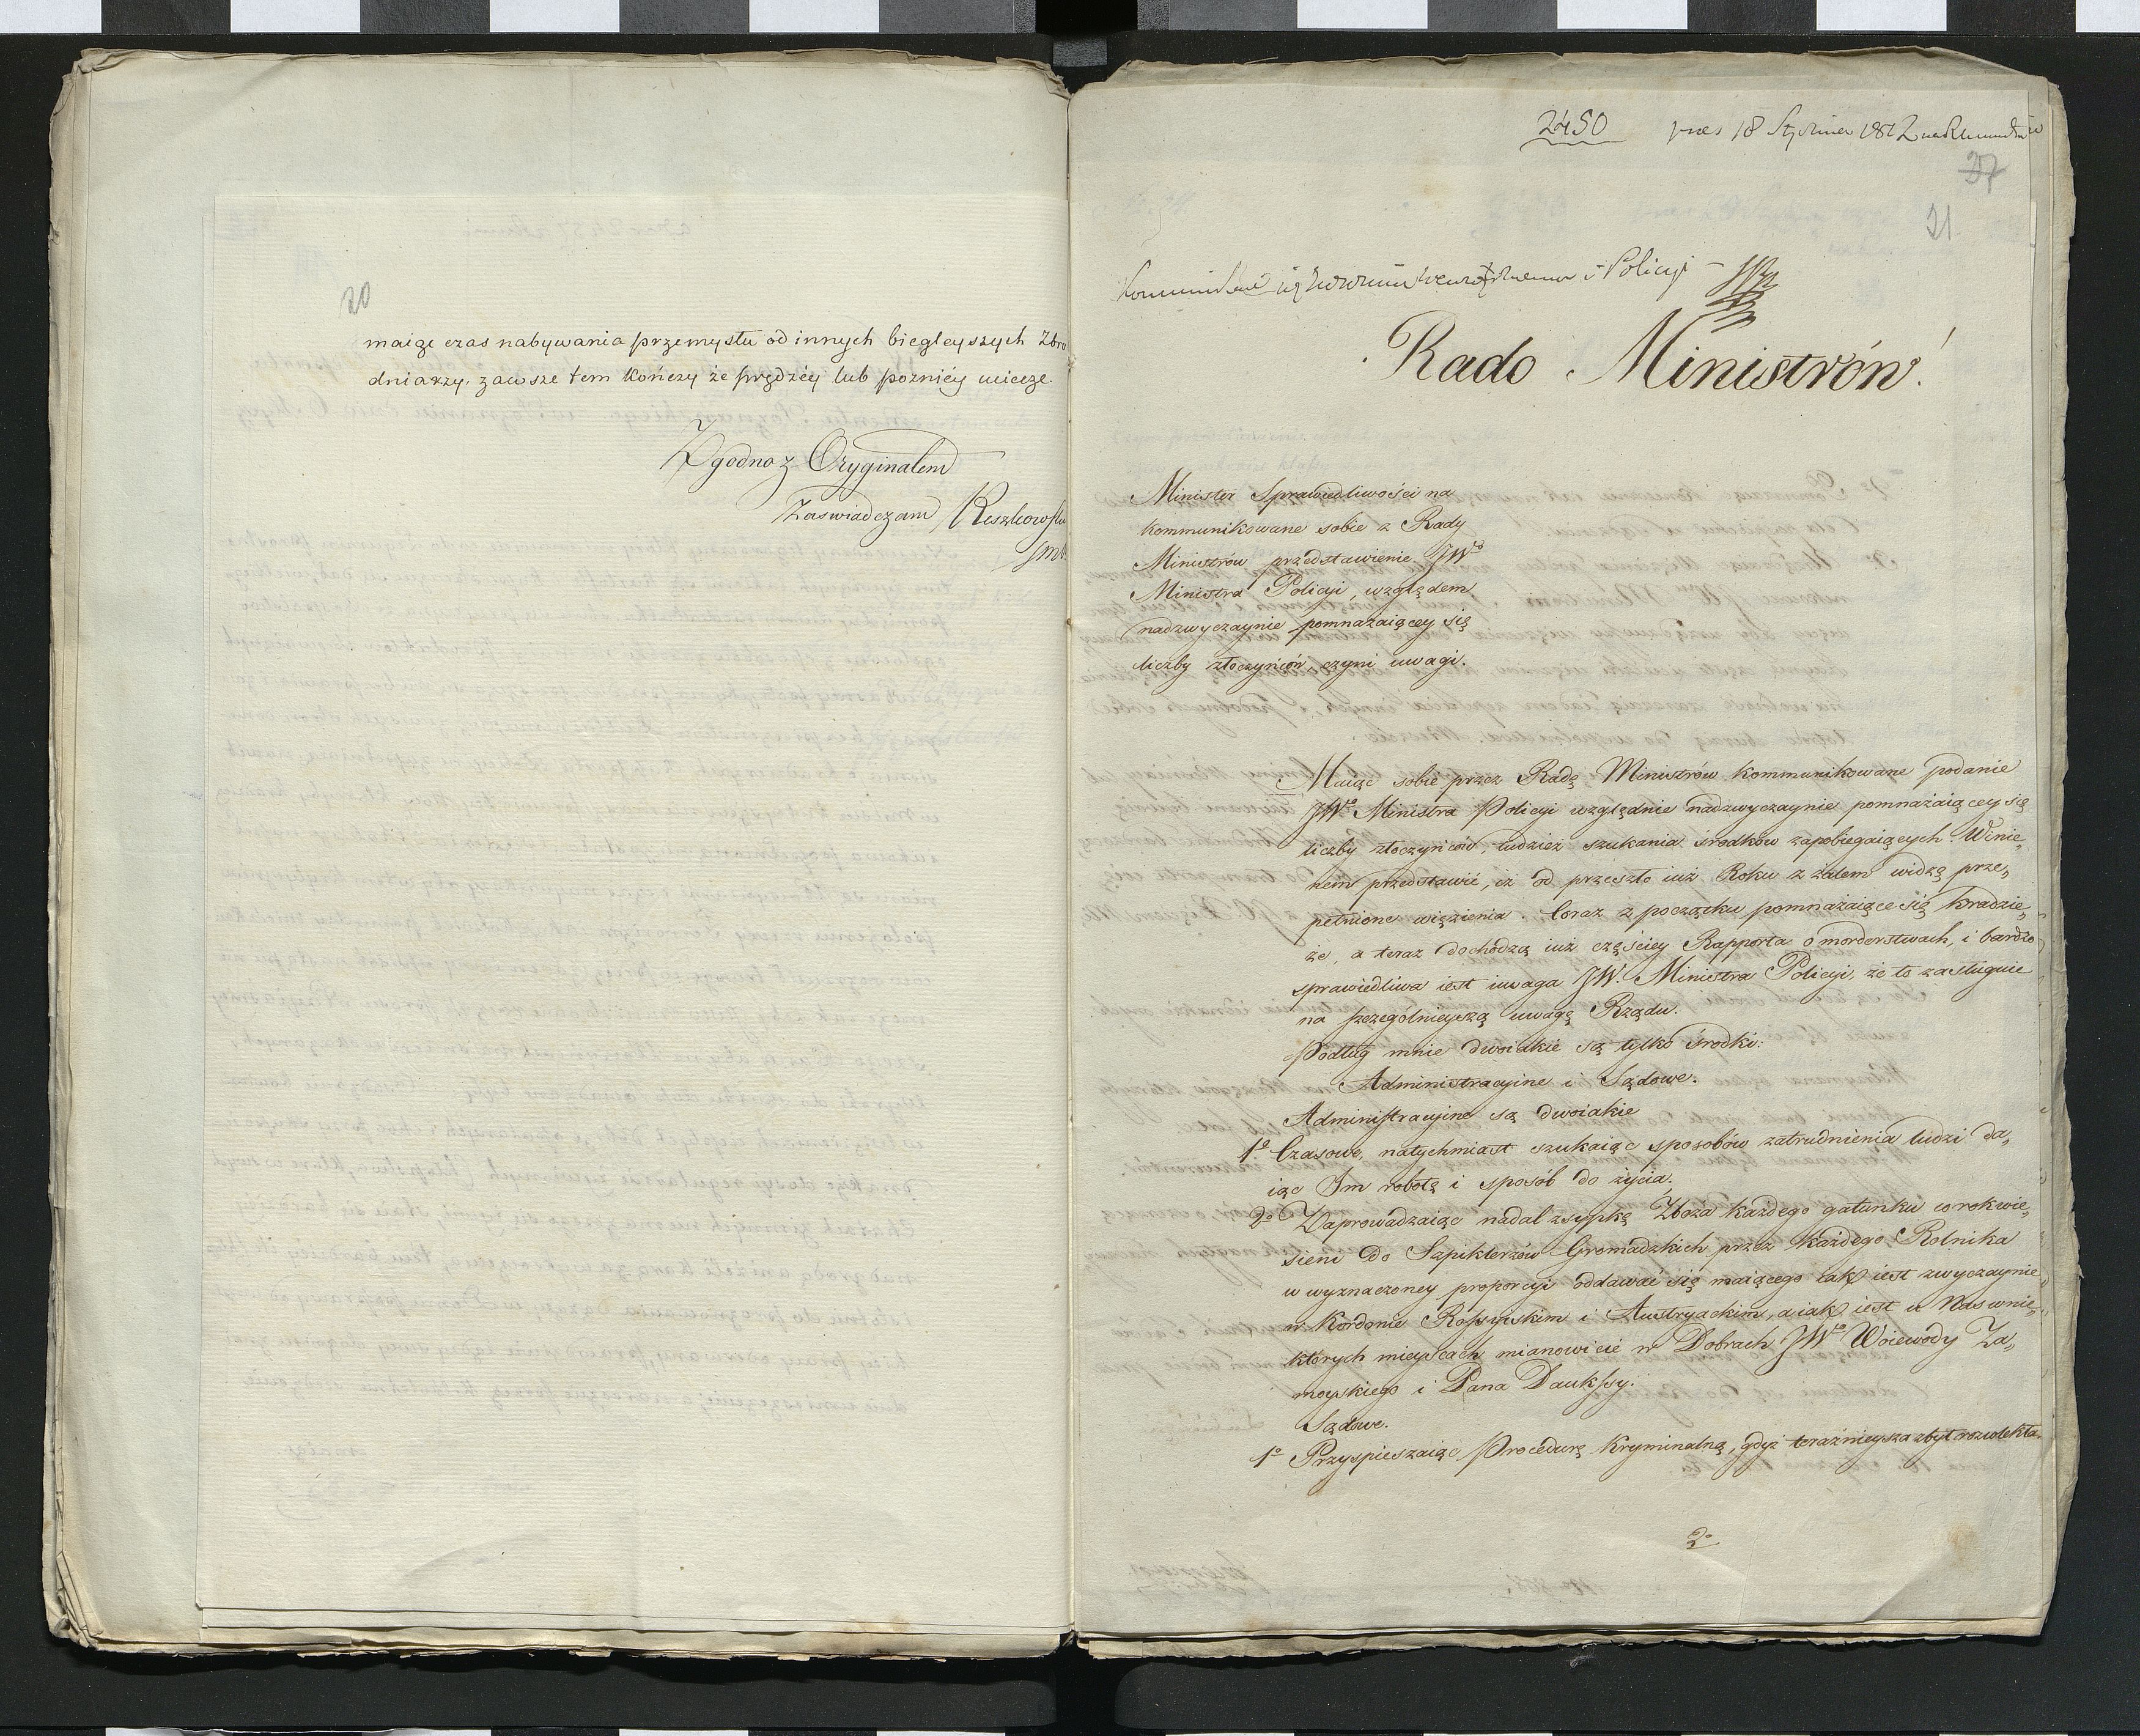 20
maiąc czas nabywania przemysłu od innych biegleyszych Zbro
dniarzy, zawsze tem kończy że prędzéy lub poznićy uiecze.
Zgodno z Oryginałem
Zaswiadczam
2450 18 Stycznia 1812
37
21
i Policyi
Rado Ministrów!
Minister Sprawiedliwości na
kommunikowane sobie z Rady
Ministrów przedstawienie JWo
Ministra Policyi, względem
nadzwyczaynie pomnażaiącey się
liczby złoczyńców, czyni uwagi.
Maiąc sobie przez Radę Ministrów kommunikowane podanie
JWo Ministra Policyi względnie nadzwyczaynie pomnażaiącey się
liczby złoczyńców, tudzież szukania środków zapobiegaiących. Winie„
nem przedstawić, iż od przeszło iuż Roku z żalem widzę prze„
pełnione więzienia. Coraz z początku pomnażaiące się kradzie„
że, a teraz dochodzą iuż częściey Rapporta o morderstwach, i bardzo
sprawiedliwa iest uwaga JW. Ministra Policyi, że to zasługuie
na szczególnieyszą uwagę Rządu.
Podług mnie dwoiakie są tylko środki:
Administracyine i Sądowe.
Administracyine są dwoiakie
1o Czasowe, natychmiast szukaiąc sposobów zatrudnienia ludzi da„
iąc Im robotę i sposób do życia.
2o Zaprowadzaiąc nadal zsypkę Zboża każdego gatunku corokwie„
sieni do Szpiklerzów Gromadzkich przez każdego Rolnika
w wyznaczoney proporcyi oddawać się maiącego iak iest zwyczaynie
w Kordonie Rossyiskim i Austryackim, a iak iest u Nas w nie„
których mieyscach mianowicie w Dobrach JWo Woiewody Za„
moyskiego i Pana Daukszy.
Sądowe.
1o Przyspieszaiąc Procedurę Kryminalną, gdyż teraźnieysza zbyt rozwlekła.
2o